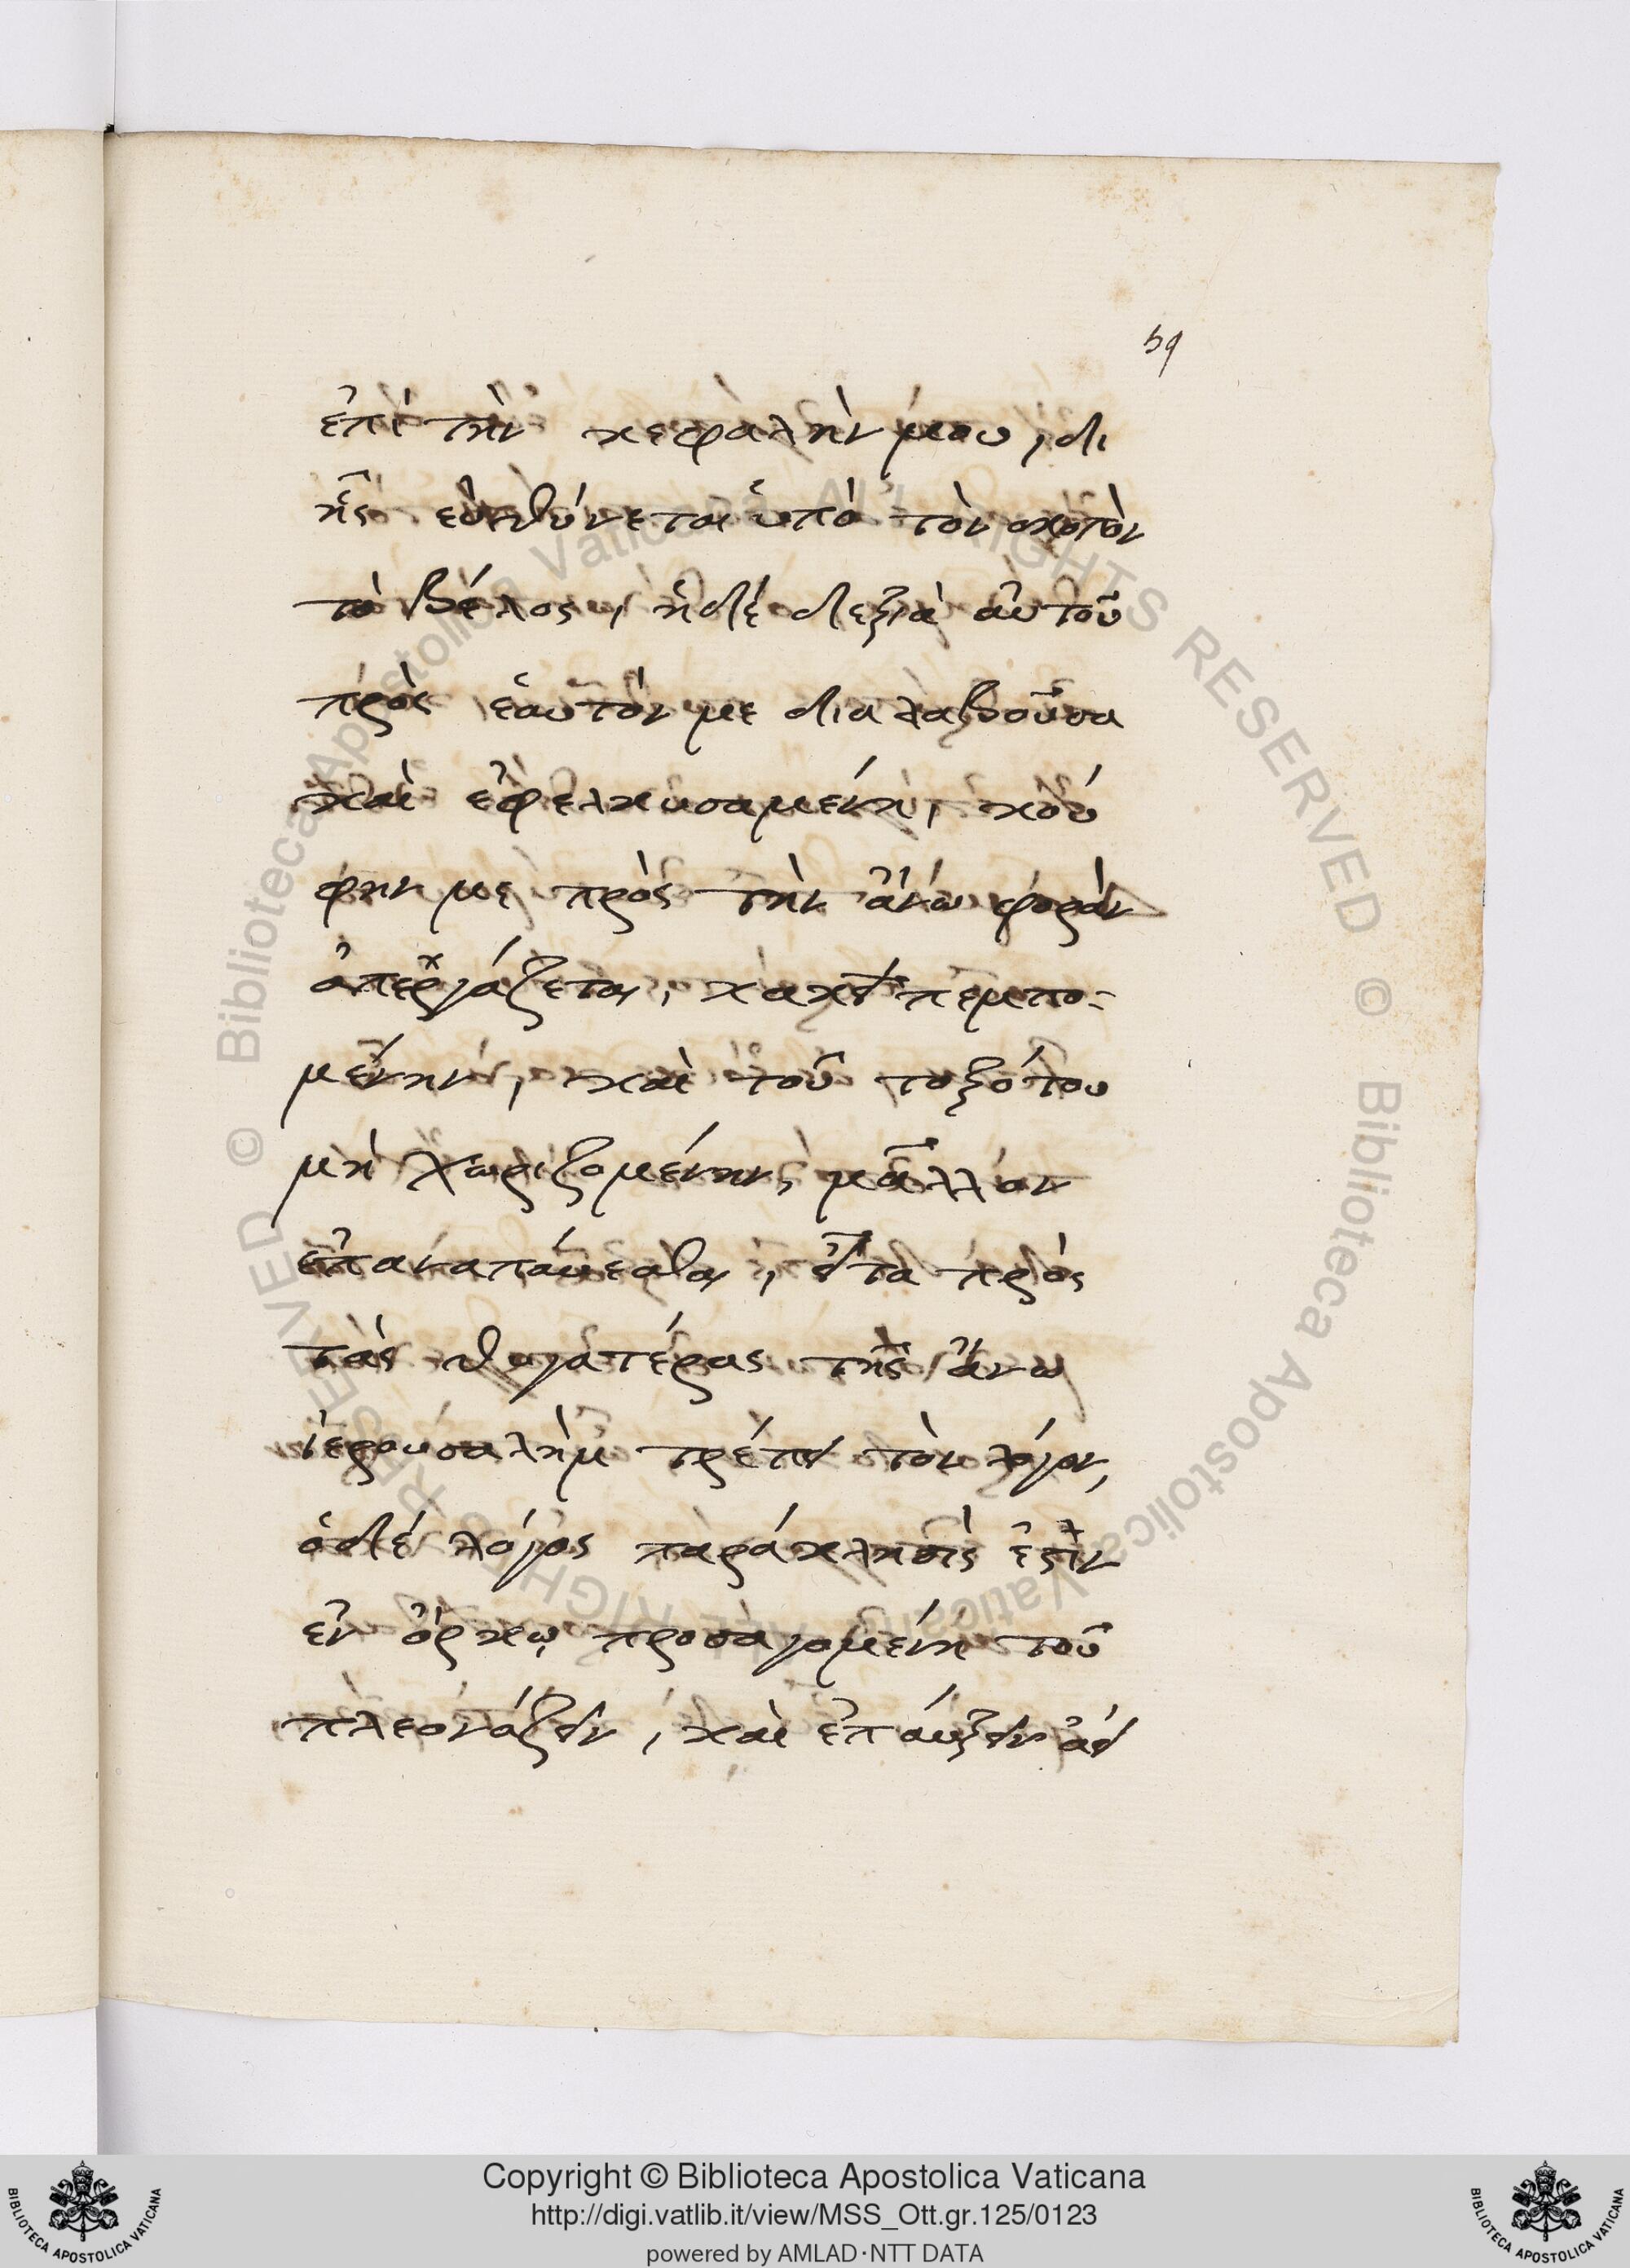 59
ἐπὶ τὴν κεφαλὴν μου, δι
ἧς εὐθύνεται ὑπὸ τὸν σκοπὸν
τὸ βέλος, ἡ δέ δεξιὰ αὐτοῦ
πρὸς ἑαυτὸν με διαλαβοῦσα
καὶ ἐφελκυσαμένη, κού
φην με πρὸς τὴν ἄνω φορὰν
ἀπεργάζεται, κακεῖ πεμπο-
μένην, καὶ τοῦ τοξότου
μὴ χωριζομένην, μᾶλλον
ἐπαναπαύεσθαι, εἶτα πρὸς
τὰς θυγατέρας τῆς ἄνω
ἱερουσαλὴμ τρέπει τὸν λόγον,
ὁ δέ λόγος παράκλησίς ἐστὶν
ἐν ὅρκῳ, προσαγομένη τοῦ
πλεονάζειν, καὶ ἐπαύξειν ἀεί
Copyright © Biblioteca Apostolica Vaticana
http://digi.vatlib.it/view/MSS_Ott.gr.125/0123
powered by AMLAD·NTT DATA
BIBLIOTECA APOSTOLICA VATICANA
BIBLIOTECA APOSTOLICA VATICANA
© Biblioteca Apostolica Vaticana ALL RIGHTS RESERVED
© Biblioteca Apostolica Vaticana ALL RIGHTS RESERVED